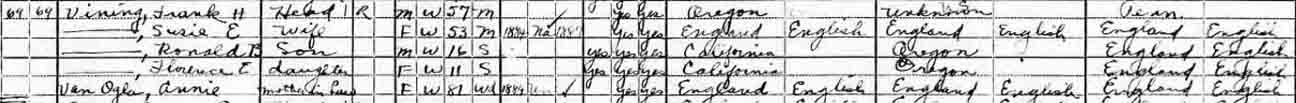 64 69 Vining, Frank H Head 1 R M W 57 M Yes Yes Oregon unknown Tenn.
———, Susie E Wife F W 53 M 1884 Na Yes Yes England English England English England English
———, Ronald B Son M W 16 S yes Yes Yes California Oregon England English
———, Florence E daughter F W 11 S Yes Yes Yes California Oregon England English
Annie mother in law F W 81 Wd 1884 Yes Yes England English England English England English